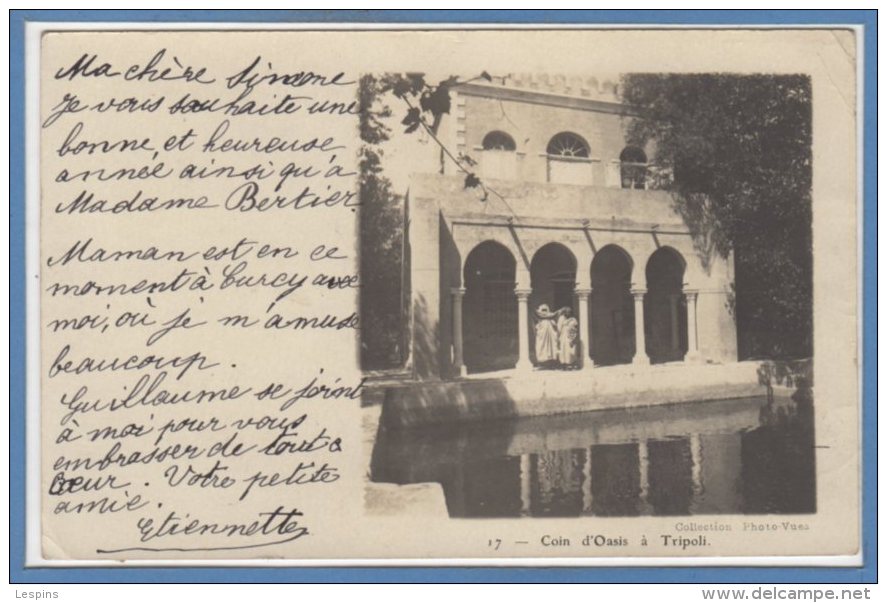 Ma chère Simone
Je vous souhaite une
bonne, et heureuse
année ainsi qu'à
Madame Bertier.
Maman est en ce
moment à Curcy avec
moi, où je m'amuse
beaucoup.
Guillaume se joint
à moi pour vous
embrasser de tout
cœur. Votre petite
amie.
Etiennette
Collection Photo-Vues
17 — Coin d'Oasis à Tripoli.
Lespins
www.delcampe.net